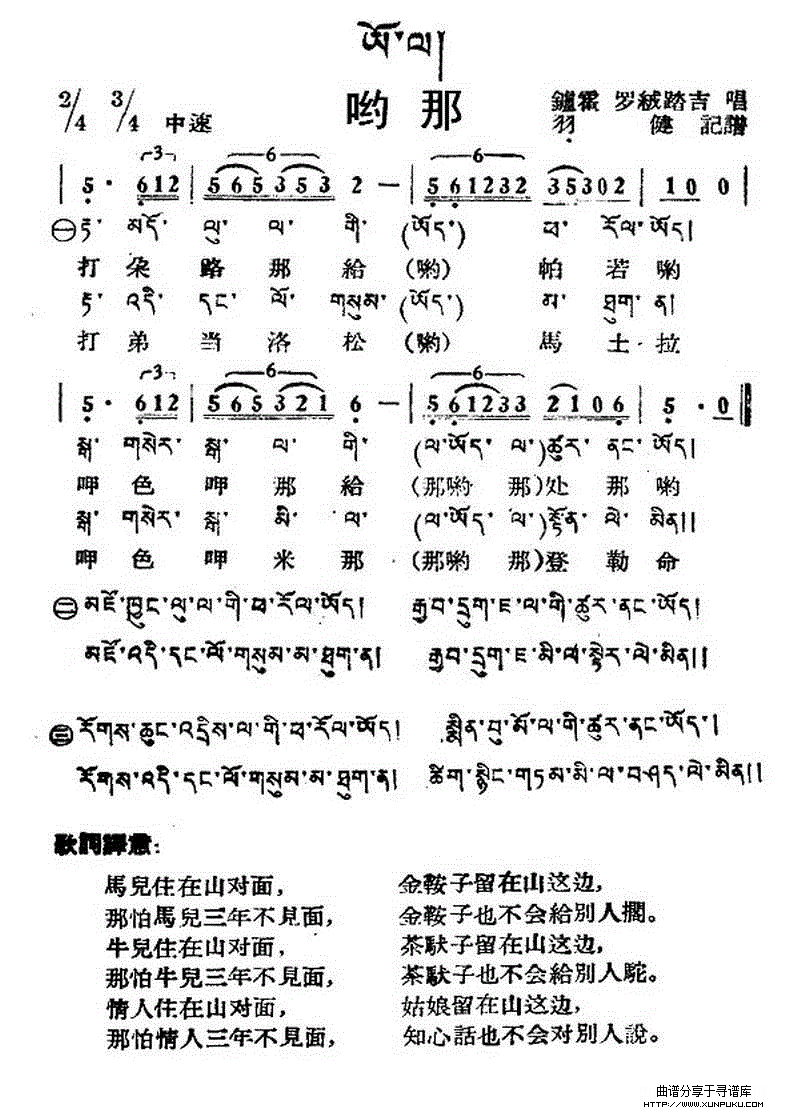 ཨོ་ལ།
哟那
2/4 3/4 中速
鑪霍 罗绒踏吉 唱
羽 健 記譜
5· 612 | 565353 2 — | 561232 35302 | 100 |
㊀ རྟ་ མདོ་ ལུ་ ལ་ གི་ (ཨོད་) ཕ་ རོལ་ཨོད།
打 朶 路 那 給 (喲) 帕 若 喲
རྟ་ འདི་ དང་ ལོ་ གསུམ་ (ཨོད་) མ་ ཐུག་ ན།
打 弟 当 洛 松 (喲) 馬 土 拉
5· 612 | 565321 6 — | 561233 2106 | 5·0 ‖
སྒ་ གསེར་ སྒ་ ལ་ གི་ (ལ་ཨོད་ ལ་)ཚུར་ ནང་ ཨོད།
呷 色 呷 那 給 (那喲 那)处 那 喲
སྒ་ གསེར་ སྒ་ མི་ ལ་ (ལ་ཨོད་ ལ་)སྟོན་ ལེ་ མིན།།
呷 色 呷 米 那 (那喲 那)登 勒 命
㊁ མཛོ་ཁྱུང་ལུ་ལ་གི་ཕ་རོལ་ཨོད། རྒྱབ་དྲུག་ཇ་ལ་གི་ཚུར་ནང་ཨོད།
མཛོ་འདི་དང་ལོ་གསུམ་མ་ཐུག་ན། རྒྱབ་དྲུག་ཇ་མི་ལ་སྟེར་ལེ་མིན།།
㊂ རོགས་ཆུང་འདྲིས་ལ་གི་ཕ་རོལ་ཨོད། སྨིན་བུ་མོ་ལ་གི་ཚུར་ནང་ཨོད་།
རོགས་འདི་དང་ལོ་གསུམ་མ་ཐུག་ན། ཚིག་སྙིང་གཏམ་མི་ལ་བཤད་ལེ་མིན།།
歌詞譯意：
馬兒住在山对面， 金鞍子留在山这边，
那怕馬兒三年不見面， 金鞍子也不会給別人擱。
牛兒住在山对面， 茶馱子留在山这边，
那怕牛兒三年不見面， 茶馱子也不会給別人駝。
情人住在山对面， 姑娘留在山这边，
那怕情人三年不見面， 知心話也不会对別人說。
曲谱分享于寻谱库
HTTP://WWW.XUNPUKU.COM